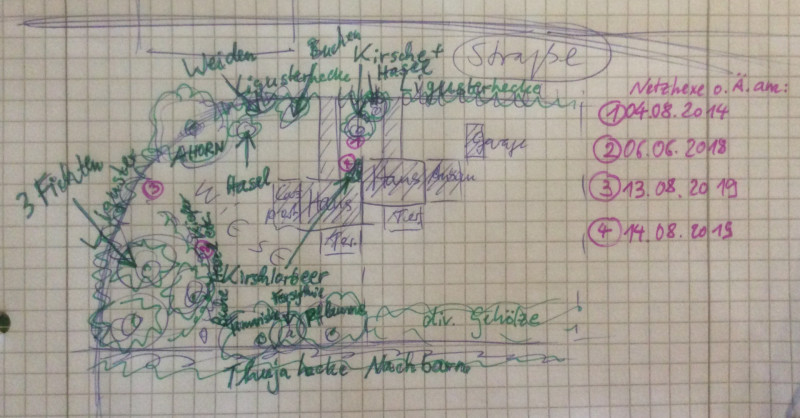 Weiden
Buchen
Kirsche +
Hasel
Straße
Ligusterhecke
Ligusterhecke
Netzhexe o. Ä. am:
① 04.08.2014
② 06.06.2018
③ 13.08.2019
④ 14.08.2019
AHORN
Garage
3 Fichten
Liguster
Hasel
③
Haus
Haus
Anbau
Ter.
Ter.
Kirschlorbeer
Forsythie
Pflaume
div. Gehölze
Thuja hecke Nachbarn